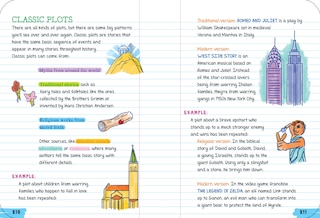 CLASSIC PLOTS
There are all kinds of plots, but there are some big patterns
you'll see over and over again. Classic plots are stories that
have the same basic sequence of events and
appear in many stories throughout history.
Classic plots can come from:
Myths from around the world
Traditional stories such as
fairy tales and folktales like the ones
collected by the Brothers Grimm or
invented by Hans Christian Andersen.
Religious works from
sacred texts
Other sources, like
where many
authors tell the same basic story with
different details.
EXAMPLE:
A plot about children from warring
families who happen to fall in love
has been repeated:
810
Traditional version: ROMEO AND JULIET is a play by
William Shakespeare set in medieval
Verona and Mantua in Italy.
Modern version:
WEST SIDE STORY is an
American musical based on
Romeo and Juliet. Instead
of the star-crossed lovers
being from warring Italian
families, they're from warring
gangs in 1950s New York City.
EXAMPLE:
A plot about a brave upstart who
stands up to a much stronger enemy
and wins has been repeated:
Religious version: In the biblical
story of David and Goliath, David,
a young Israelite, stands up to the
giant Goliath. Using only a slingshot
and a stone, he brings him down.
Modern version: In the video game franchise
THE LEGEND OF ZELDA, an elf named Link stands
up to Ganon, an evil man who can transform into
a giant boar, to protect the land of Hyrule.
811